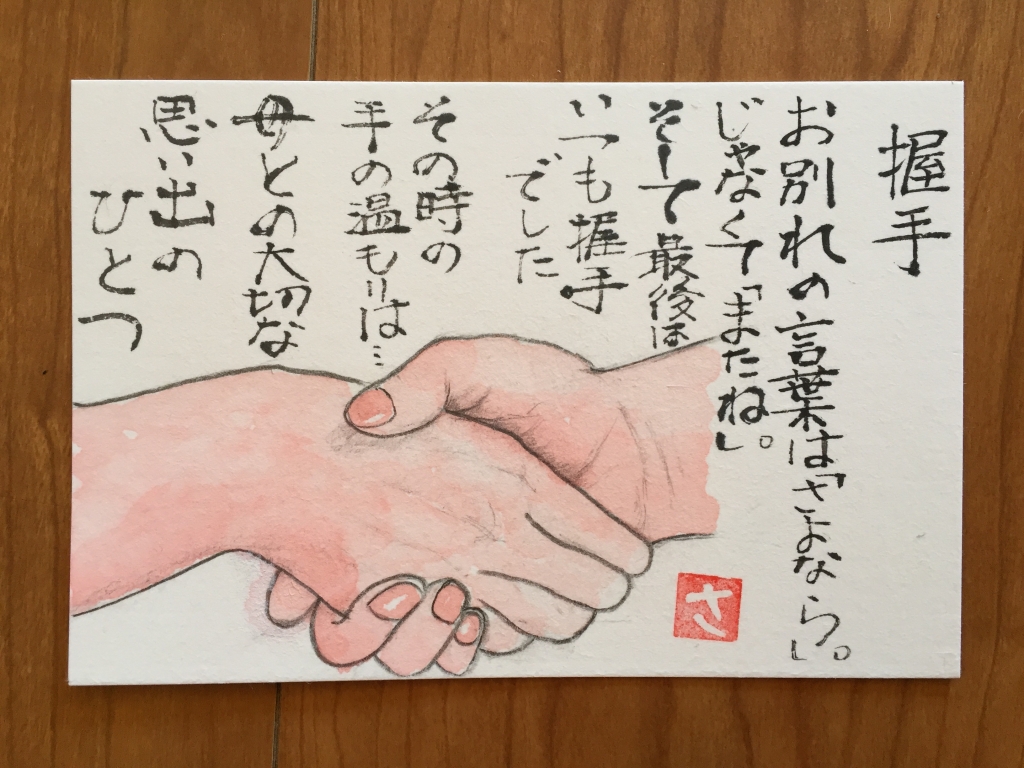 握手
お別れの言葉は「さよなら」。
じゃなくて「またね」。
そして最後は
いつも握手
でした
その時の
手の温もりは…
母との大切な
思い出の
ひとつ
さ